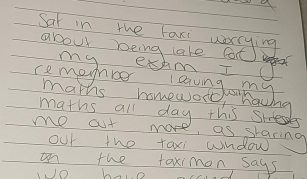 Sat in the taxi worrying
about being late for
my exam I
remember leaving my
maths homework, with having
maths all day this stresses
me out more, as staring
out the taxi window
the taximan says
we have